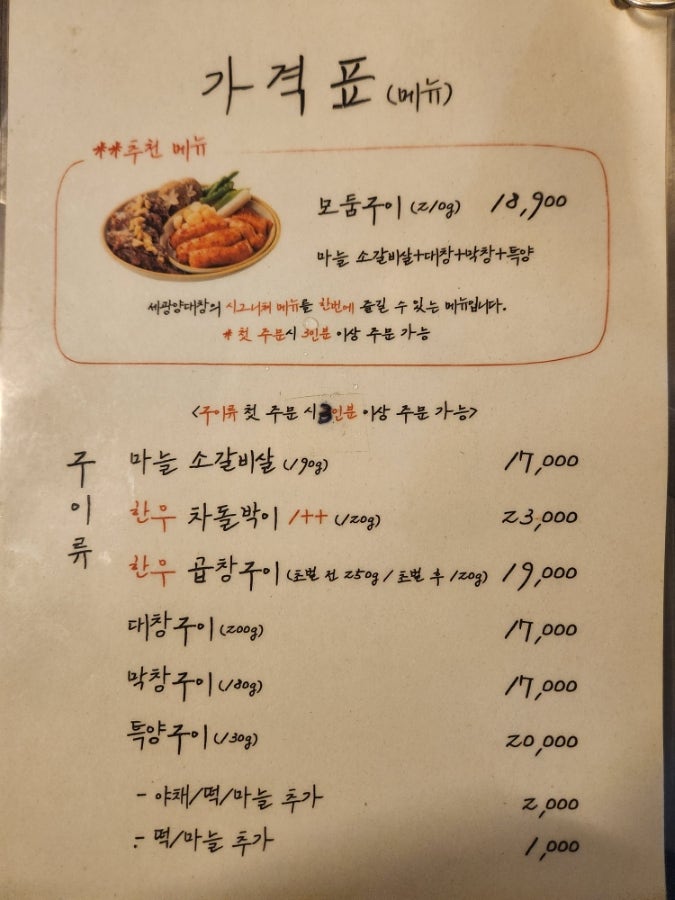 가격표 (메뉴)
**추천 메뉴
모둠구이 (210g) 18,900
마늘 소갈비살+대창+막창+특양
세광양대창의 시그니처 메뉴를 한번에 즐길 수 있는 메뉴입니다.
* 첫 주문시 3인분 이상 주문 가능
<구이류 첫 주문 시 3인분 이상 주문 가능>
구이류
마늘 소갈비살 (190g) 17,000
한우 차돌박이 1++ (120g) 23,000
한우 곱창구이 (초벌 전 250g / 초벌 후 120g) 19,000
대창구이 (200g) 17,000
막창구이 (180g) 17,000
특양구이 (130g) 20,000
- 야채/떡/마늘 추가 2,000
- 떡/마늘 추가 1,000